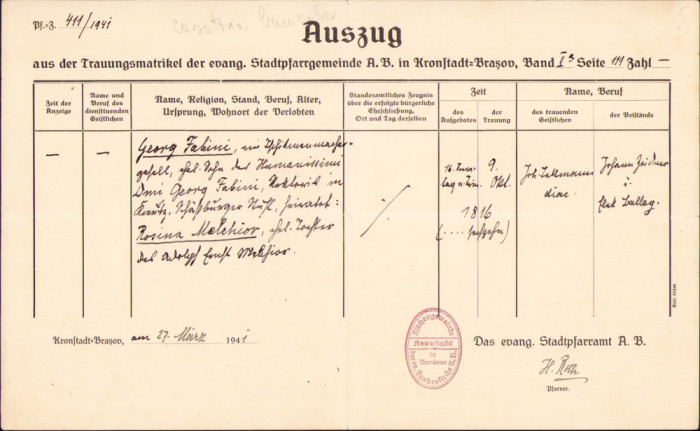 Pf.-Z. 411/1941
Auszug
aus der Trauungsmatrikel der evang. Stadtpfarrgemeinde A. B. in Kronstadt-Brașov, Band I a Seite 111 Zahl —
Zeit der Anzeige
Name und Beruf des diensttuenden Geistlichen
Name, Religion, Stand, Beruf, Alter, Ursprung, Wohnort der Verlobten
Standesamtliches Zeugnis über die erfolgte bürgerliche Eheschließung, Ort und Tag derselben
Zeit
des Aufgebotes
der Trauung
Name, Beruf
des trauenden Geistlichen
der Beistände
—
—
Georg Fabini, ein
gesell, ehel. Sohn des Humanissimi
Dmi Georg Fabini, Rektoris in
Schäßburger Stuhl, heiratet:
Rosina Melchior, ehel. Tochter
des Ernst Melchior.
16.
9. Okt.
1816
(.... sechzehn)
Joh.
diac.
Johann
u
Kronstadt-Brașov, am 27. März 1941
Kirchengemeinde
Kronstadt
in
Rumänien
Landeskirche A.B.
Das evang. Stadtpfarramt A. B.
H. Roth
Pfarrer.